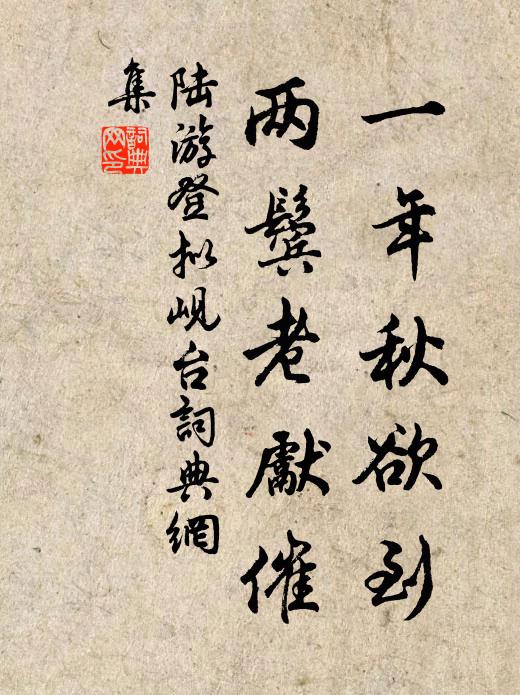 一年秋欲到
两鬓老献催
陆游登拟岘台詞典網
集
詞典
网印